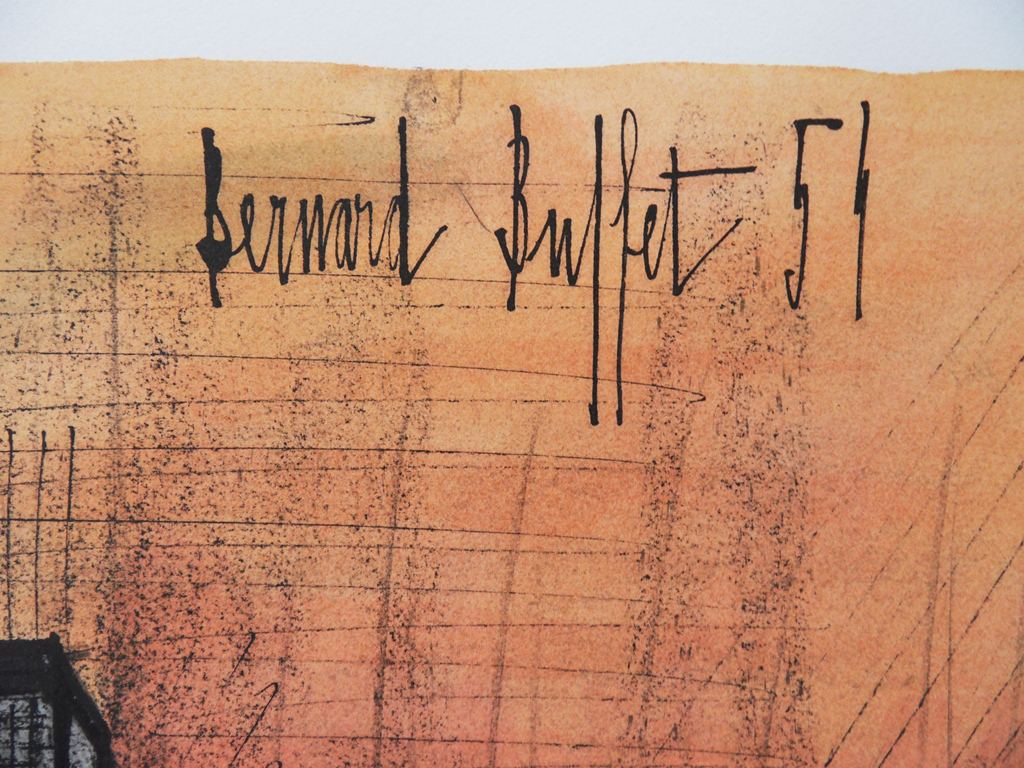 Bernard Buffet 51